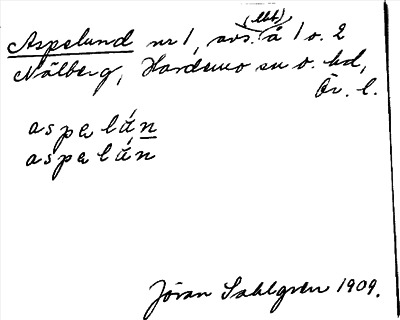 (ebt)
Aspelund nr 1, avs. å 1 o. 2
Nälberg, Hardemo sn o. hd,
Ör. l.
aspelán
aspelán
Jöran Sahlgren 1909.